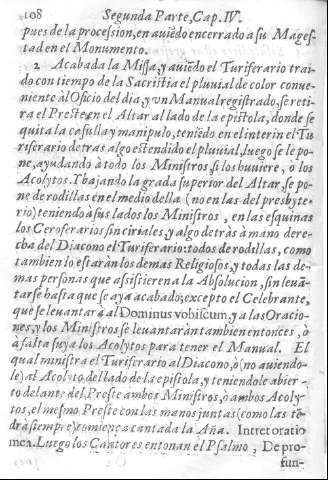 108 Segunda Parte, Cap. IV.
pues de la procession, en auiẽdo encerrado a su Mages-
tad en el Monumento.
2. Acabada la Missa, y auiẽdo el Turiferario trai-
do con tiempo de la Sacristia el pluuial de color conue-
niente àl Oficio del dia, y vn Manual registrado, se reti-
ra el Preste en el Altar al lado de la epistola, donde se
quita la casulla y manipulo, teniẽdo en el interin el Tu-
riferario detras algo estendido el pluuial, luego se le po-
ne, ayudando à todo los Ministros, si los huuiere, ò los
Acolytos. Y bajando la grada superior del Altar, se po-
ne de rodillas en el medio della (no en las del presbyte-
rio) teniendo à sus lados los Ministros, en las esquinas
los Ceroferarios sin ciriales, y algo detràs à mano dere-
cha del Diacono el Turiferario: todos de rodillas, como
tambien lo estaràn los demas Religiosos, y todas las de-
mas personas que assistieren a la Absolucion, sin leuã-
tarse hasta que se aya acabado, excepto el Celebrante,
que se leuantarà al Dominus vobiscum, y a las Oracio-
nes, y los Ministros se leuantaràn tambien entonces, ò
à falta suya los Acolytos para tener el Manual. El
qual ministra el Turiferario al Diacono, ò (no auiendo-
le) al Acolyto del lado de la epistola, y teniendole abier-
to delante del Preste ambos Ministros, ò ambos Acoly-
tos, el mesmo Preste con las manos juntas (como las tẽ-
drà siempre) comiença cantada la Aña. Intret oratio
mea. Luego los Cantores entonan el Psalmo, De pro-
fun-